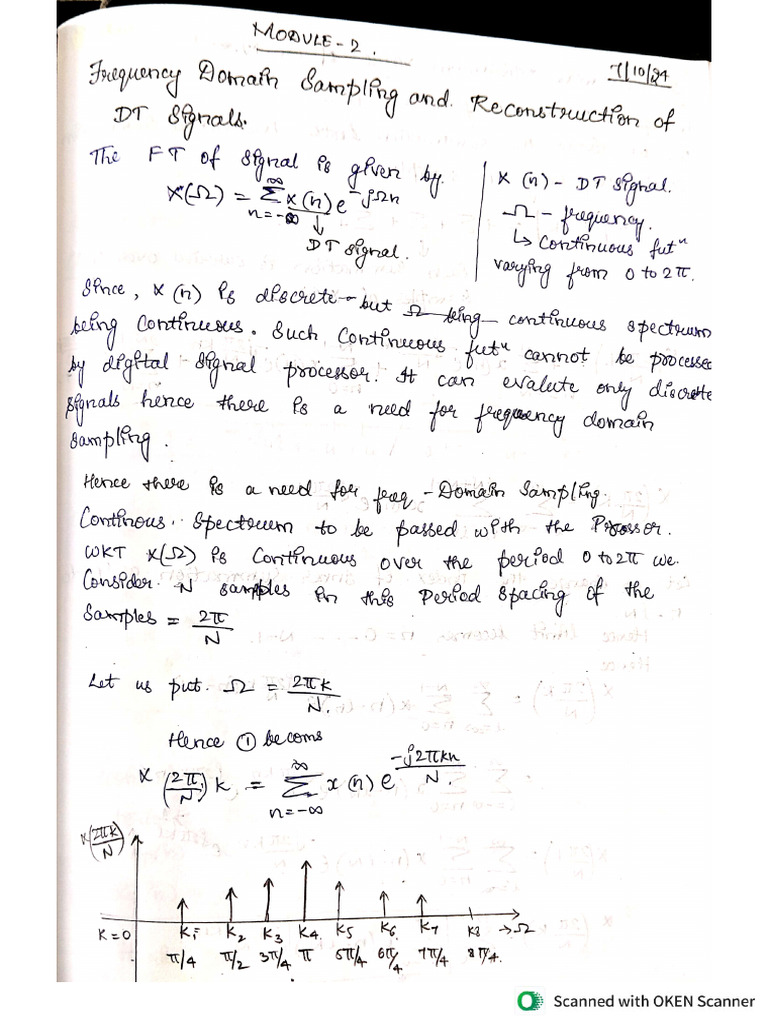 MODULE-2.
7/10/24
Frequency Domain Sampling and Reconstruction of
DT Signals.
The FT of signal is given by
X(Ω) = ∞ Σ n=-∞ x(n) e^-jΩn
↓
DT Signal.
x (n) - DT signal.
Ω - frequency.
↳ Continuous futⁿ
varying from 0 to 2π.
Since, x (n) is discrete but Ω being continuous spectrum
being Continuous. Such Continuous futⁿ cannot be processe
by digital signal processor. It can evalute only discrete
signals hence there is a need for frequency domain
Sampling.
Hence there is a need for freq - Domain Sampling
Continous. Spectrum to be passed with the Prossor.
WKT X(Ω) is Continuous over the period 0 to 2π we
Consider N samples in this Period spacing of the
Samples = 2π/N
Let us put. Ω = 2πk/N.
Hence ① becoms
X (2π/N) k = ∞ Σ n=-∞ x (n) e^-j2πkn/N.
X(2πk/N)
K=0 K₁= K₂ K₃ K₄ K₅ K₆ K₇ K8 →Ω
π/4 π/2 3π/4 π 5π/4 6π/4 7π/4 8π/4.
Scanned with OKEN Scanner